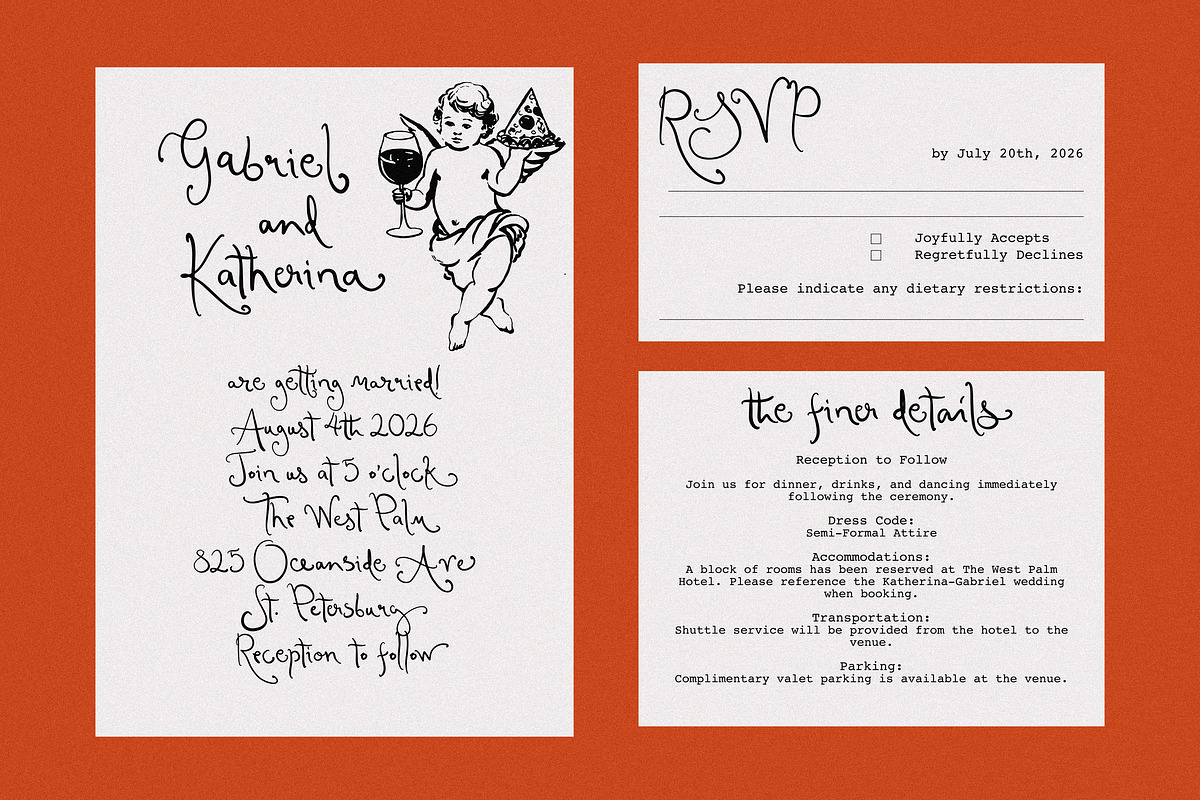 Gabriel
and
Katherina
are getting married!
August 4th 2026
Join us at 5 o'clock
The West Palm
825 Oceanside Ave
St. Petersburg
Reception to follow
RSVP
by July 20th, 2026
Joyfully Accepts
Regretfully Declines
Please indicate any dietary restrictions:
the finer details
Reception to Follow
Join us for dinner, drinks, and dancing immediately
following the ceremony.
Dress Code:
Semi-Formal Attire
Accommodations:
A block of rooms has been reserved at The West Palm
Hotel. Please reference the Katherina-Gabriel wedding
when booking.
Transportation:
Shuttle service will be provided from the hotel to the
venue.
Parking:
Complimentary valet parking is available at the venue.